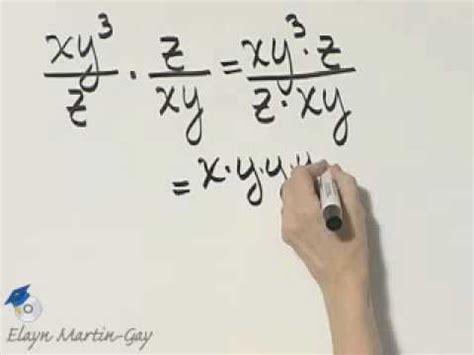 xy³/z · z/xy = xy³·z/z·xy
= x·y·y·y
Elayn Martin-Gay